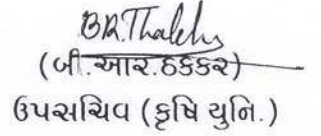 B.R.Thakkar
(બી.આર.ઠક્કર)
ઉપસચિવ (કૃષિ યુનિ.)